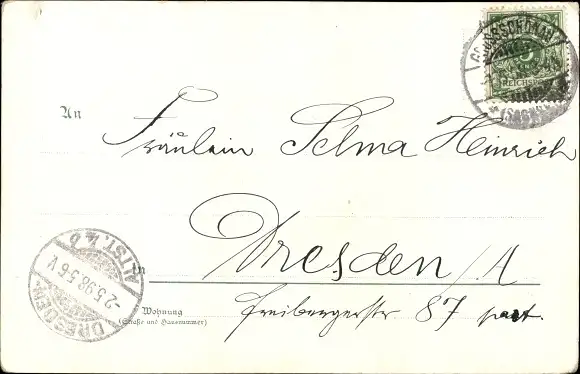 GROSSSCHÖNAU
5
REICHSPOST
(SACHSEN)
An
Fräulein Selma Heinrich
in Dresden/A
DRESDEN-ALTST. 4. b
-2.5.98.5-6V
Wohnung
(Straße und Hausnummer)
Freibergerstr 87 part.